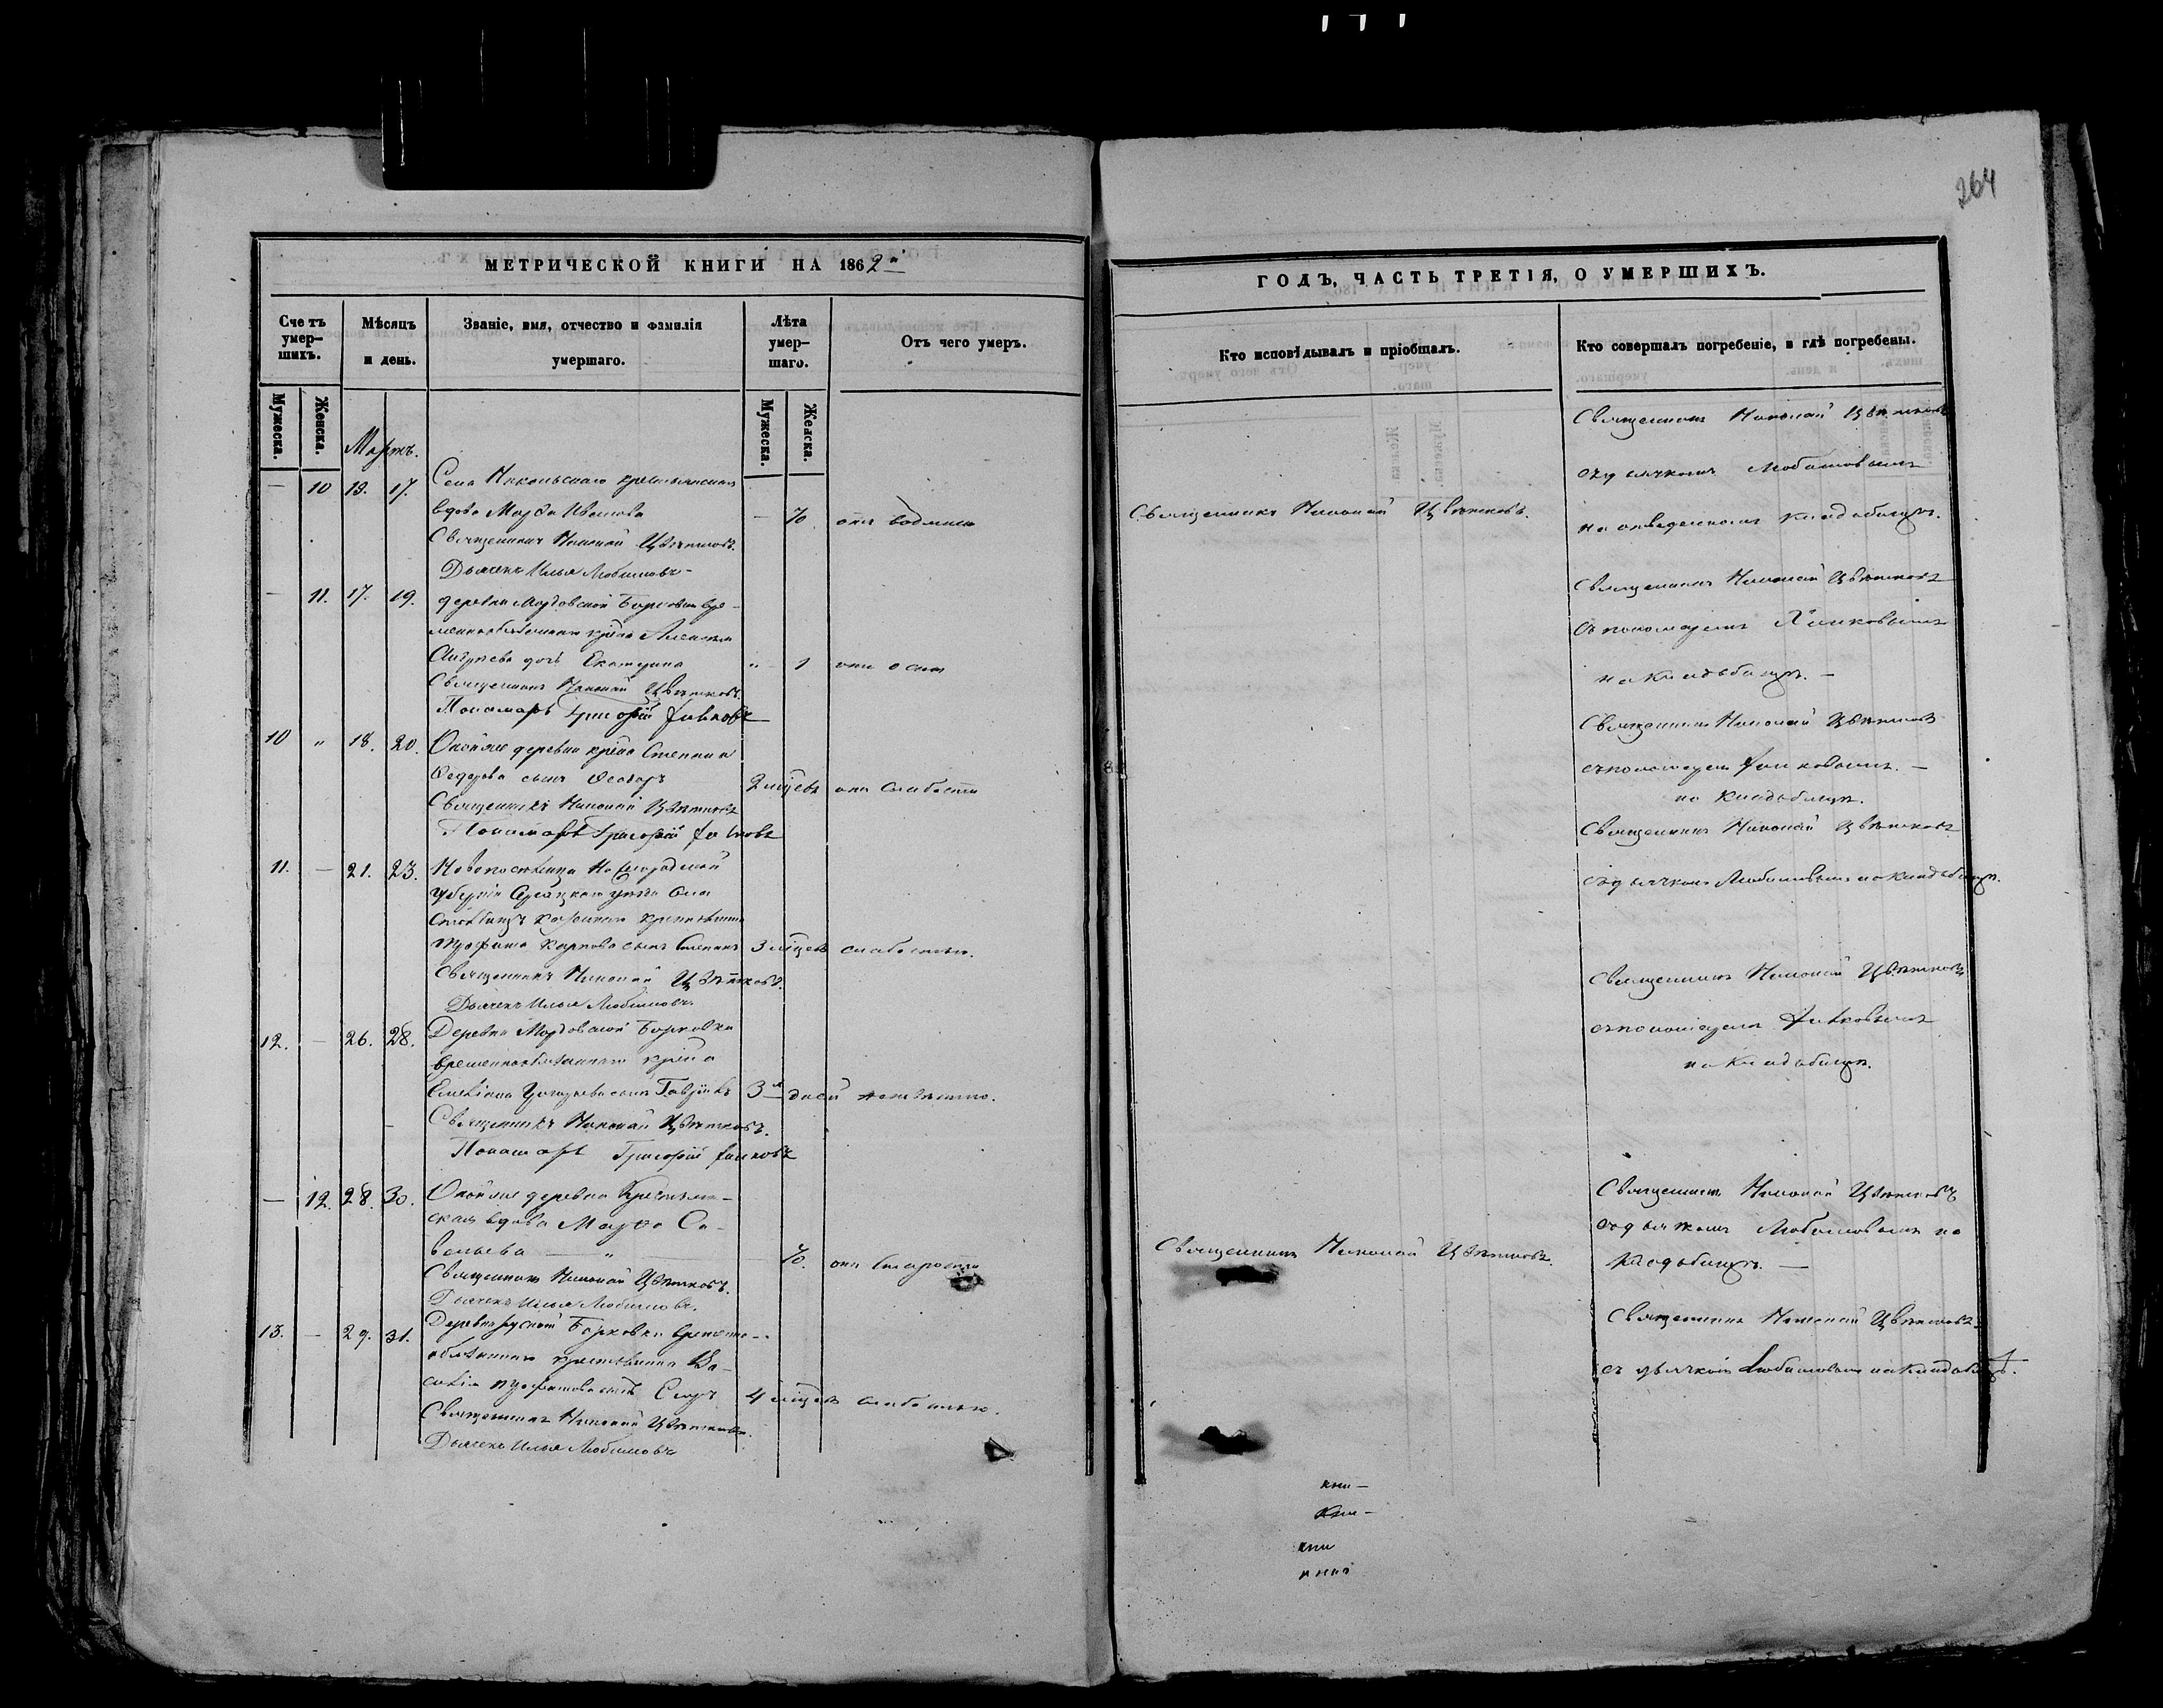 264
МЕТРИЧЕСКОЙ КНИГИ НА 1862й
Счетъ умер-шихъ.
Мѣсяцъ и день.
Званіе, имя, отчество и фамилія умершаго.
Лѣта умер-шаго.
Отъ чего умеръ.
Мужеска.
Женска.
Мужеска.
Женска.
Мартъ.
— 10 13. 17. Села Никольскаго крестьянская
вдова Марѳа Иванова — 70. отъ водянки
Священникъ Николай Цвѣтковъ.
Дьячекъ Илья Любимовъ
— 11. 17. 19. деревни Мордовской Борковки вре-
меннообязаннаго кр-на Алексѣя
Андреева дочь Екатерина „ 1 отъ оспы
Священникъ Николай Цвѣтковъ.
Пономарь Григорій
10 „ 18. 20. Оной же деревни кр-на Степана
Ѳедорова сынъ Ѳедоръ 2 мѣсяцевъ отъ слабости
Священникъ Николай Цвѣтковъ
Пономарь Григорій
11. — 21. 23. Новопоселенца
губерніи уѣзда села
крестьянина
Трофима Карпова сынъ Степанъ 3 мѣсяцевъ слабостью.
Священникъ Николай Цвѣтковъ.
Дьячекъ Илья Любимовъ.
12. — 26. 28. Деревни Мордовской Борковки
временнообязаннаго кр-на
сынъ Гавріилъ 3х дней
Священникъ Николай Цвѣтковъ.
Пономарь Григорій
— 12. 28. 30. Оной же деревни крестьян-
ская вдова Марѳа Са-
вельева — „ — 70. отъ старости
Священникъ Николай Цвѣтковъ.
Дьячекъ Илья Любимовъ.
13. — 29. 31. Деревни русской Борковки временно-
обязаннаго крестьянина Ва-
силія Трофимова сынъ Егоръ 4 мѣсяцевъ слабостью.
Священникъ Николай Цвѣтковъ.
Дьячекъ Илья Любимовъ
ГОДЪ, ЧАСТЬ ТРЕТІЯ, О УМЕРШИХЪ.
Кто исповѣдывалъ и пріобщалъ.
Кто совершалъ погребеніе, и гдѣ погребены.
Священникъ Николай Цвѣтковъ
съ дьячкомъ Любимовымъ
Священникъ Николай Цвѣтковъ.
на отведенномъ кладбищѣ.
Священникъ Николай Цвѣтковъ
съ пономаремъ
на кладбищѣ. —
Священникъ Николай Цвѣтковъ
съ пономаремъ
на кладбищѣ.
Священникъ Николай Цвѣтковъ
съ дьячкомъ Любимовымъ на кладбищѣ.
Священникъ Николай Цвѣтковъ
съ пономаремъ
на кладбищѣ.
Священникъ Николай Цвѣтковъ
съ дьячкомъ Любимовымъ на
Священникъ Николай Цвѣтковъ.
кладбищѣ. —
Священникъ Николай Цвѣтковъ.
съ дьячкомъ Любимовымъ на кладбищѣ.
кни-
Кни-
кни